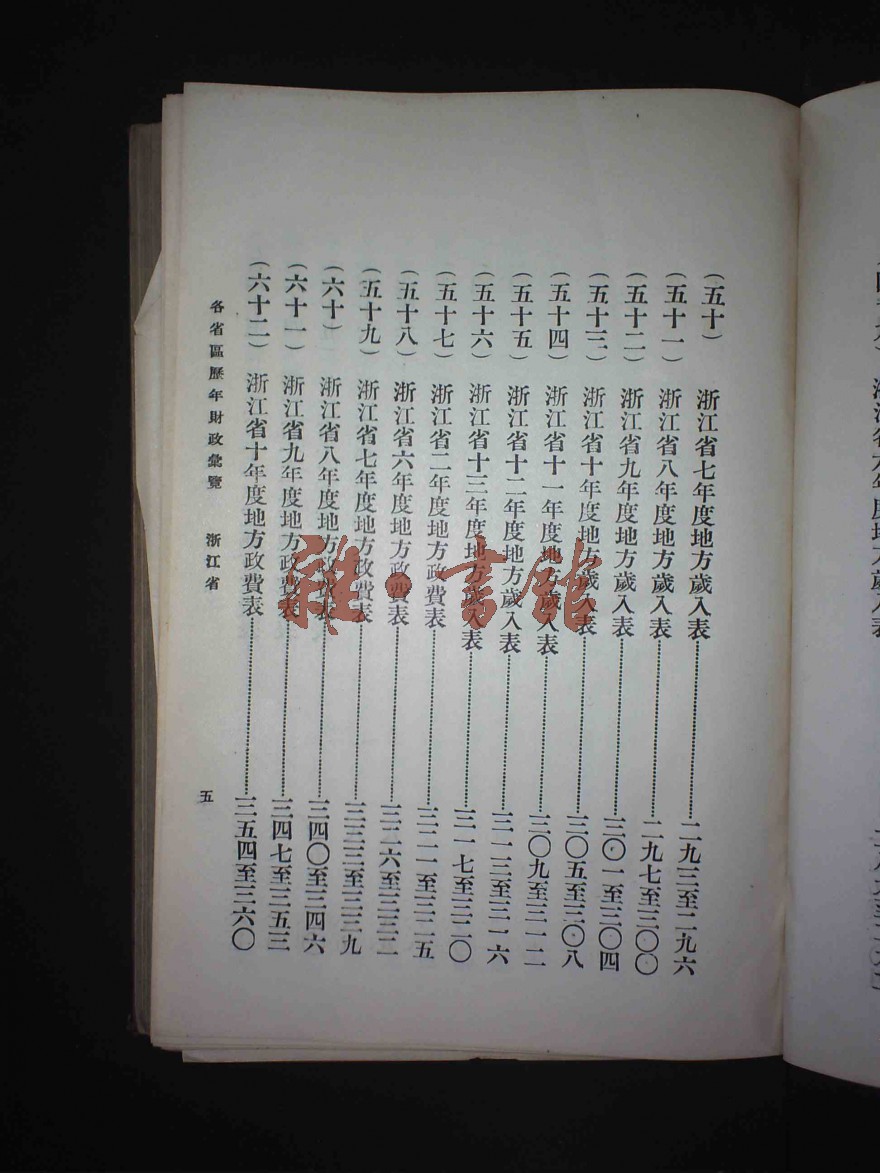 (五十) 浙江省七年度地方歲入表……二九三至二九六
(五十一) 浙江省八年度地方歲入表……二九七至三〇〇
(五十二) 浙江省九年度地方歲入表……三〇一至三〇四
(五十三) 浙江省十年度地方歲入表……三〇五至三〇八
(五十四) 浙江省十一年度地方歲入表……三〇九至三一二
(五十五) 浙江省十二年度地方歲入表……三一三至三一六
(五十六) 浙江省十三年度地方歲入表……三一七至三二〇
(五十七) 浙江省二年度地方政費表……三二一至三二五
(五十八) 浙江省六年度地方政費表……三二六至三三二
(五十九) 浙江省七年度地方政費表……三三三至三三九
(六十) 浙江省八年度地方政費表……三四〇至三四六
(六十一) 浙江省九年度地方政費表……三四七至三五三
(六十二) 浙江省十年度地方政費表……三五四至三六〇
各省區歷年財政彙覽 浙江省 五
雜·書館